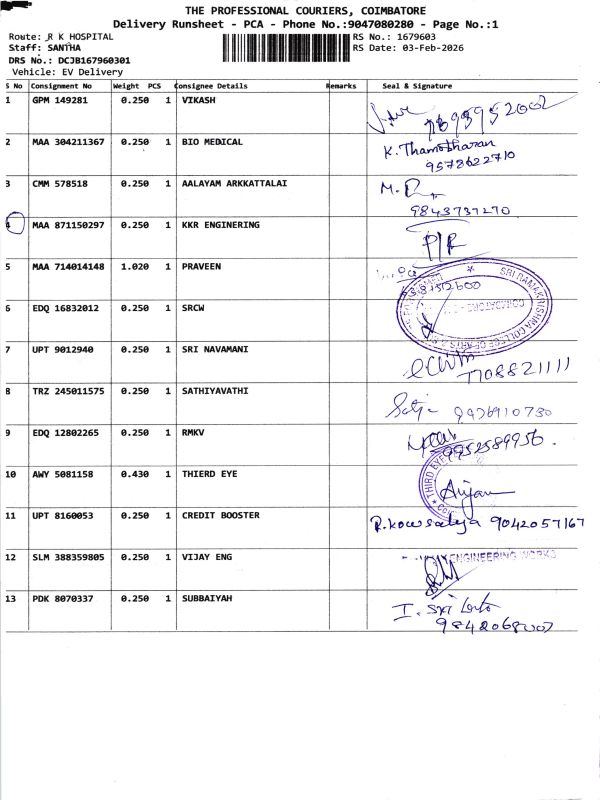 THE PROFESSIONAL COURIERS, COIMBATORE
Delivery Runsheet - PCA - Phone No.:9047080280 - Page No.:1
Route: R K HOSPITAL
RS No.: 1679603
Staff: SANTHA
RS Date: 03-Feb-2026
DRS No.: DCJB167960301
Vehicle: EV Delivery
S No Consignment No Weight PCS Consignee Details Remarks Seal & Signature
1 GPM 149281 0.250 1 VIKASH
2 MAA 304211367 0.250 1 BIO MEDICAL K. Thamotharan
9578622710
3 CMM 578518 0.250 1 AALAYAM ARKKATTALAI
9843737270
4 MAA 871150297 0.250 1 KKR ENGINERING P/R
5 MAA 714014148 1.020 1 PRAVEEN
SRI RAMAKRISHNA COLLEGE OF ARTS &
COIMBATORE
6 EDQ 16832012 0.250 1 SRCW
7 UPT 9012940 0.250 1 SRI NAVAMANI
7708821111
8 TRZ 245011575 0.250 1 SATHIYAVATHI
9976910730
9 EDQ 12802265 0.250 1 RMKV
9952589956.
10 AWY 5081158 0.430 1 THIERD EYE
THIRD EYE
11 UPT 8160053 0.250 1 CREDIT BOOSTER R.kowsalya 9042057167
12 SLM 388359805 0.250 1 VIJAY ENG ENGINEERING WORKS
13 PDK 8070337 0.250 1 SUBBAIYAH